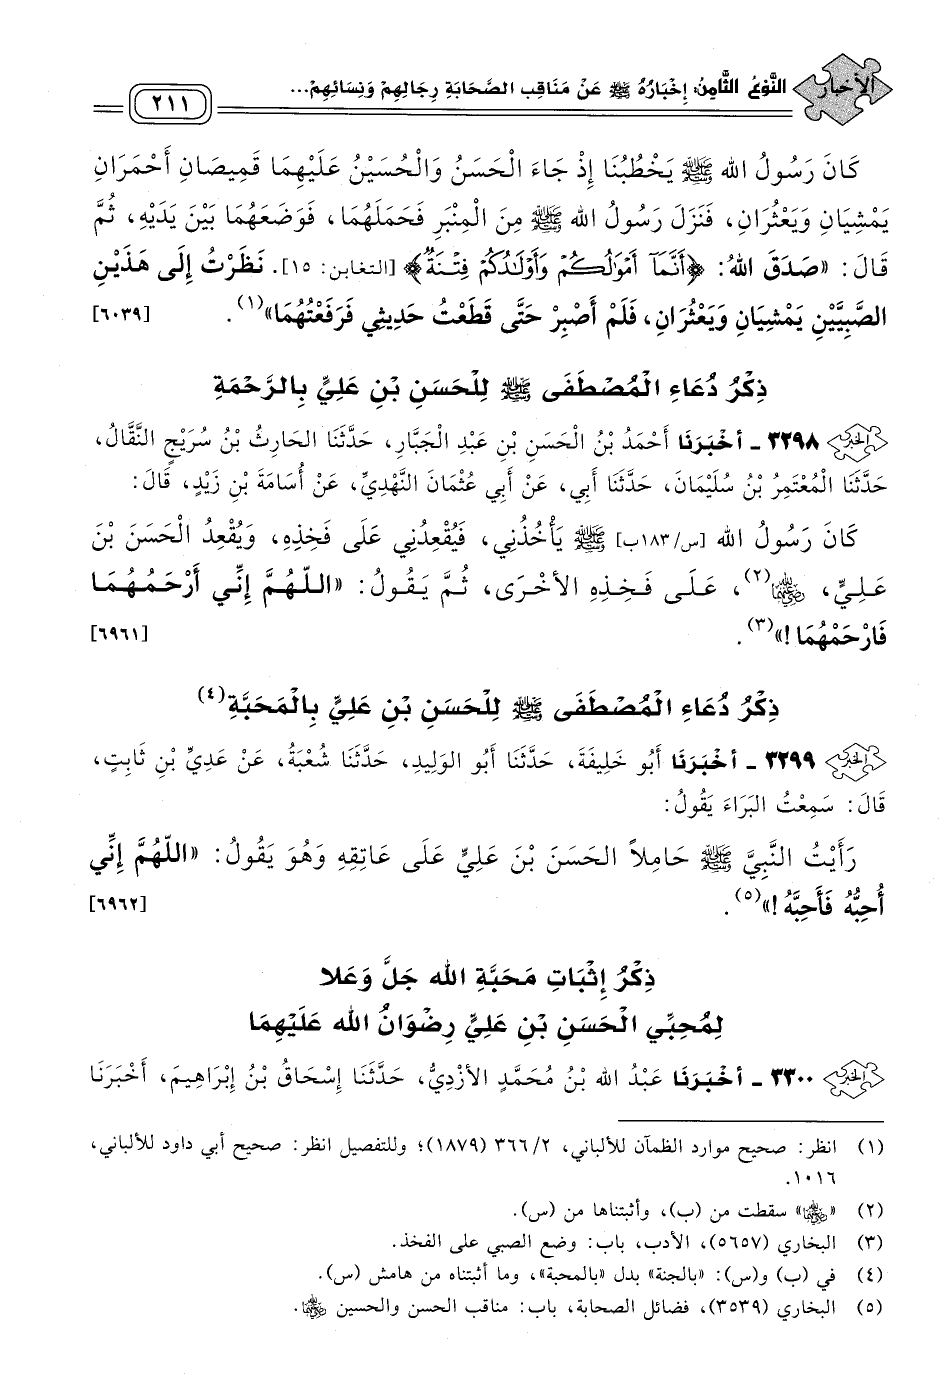 الأخبار النَّوْعُ الثَّامِنُ: إِخْبَارُهُ ﷺ عَنْ مَنَاقِبِ الصَّحَابَةِ رِجَالِهِمْ وَنِسَائِهِمْ... ٢١١
كَانَ رَسُولُ الله ﷺ يَخْطُبُنَا إِذْ جَاءَ الْحَسَنُ وَالْحُسَيْنُ عَلَيْهِمَا قَمِيصَانِ أَحْمَرَانِ
يَمْشِيَانِ وَيَعْثُرَانِ، فَنَزَلَ رَسُولُ الله ﷺ مِنَ الْمِنْبَرِ فَحَمَلَهُمَا، فَوَضَعَهُمَا بَيْنَ يَدَيْهِ، ثُمَّ
قَالَ: «صَدَقَ اللهُ: ﴿أَنَّمَآ أَمْوَٰلُكُمْ وَأَوْلَٰدُكُمْ فِتْنَةٌ﴾ [التغابن: ١٥]. نَظَرْتُ إِلَى هَذَيْنِ
الصَّبِيَّيْنِ يَمْشِيَانِ وَيَعْثُرَانِ، فَلَمْ أَصْبِرْ حَتَّى قَطَعْتُ حَدِيثِي فَرَفَعْتُهُمَا»(١). [٦٠٣٩]
ذِكْرُ دُعَاءِ الْمُصْطَفَى ﷺ لِلْحَسَنِ بْنِ عَلِيٍّ بِالرَّحْمَةِ
الخبر ٣٢٩٨ - أَخْبَرَنَا أَحْمَدُ بْنُ الْحَسَنِ بْنِ عَبْدِ الْجَبَّارِ، حَدَّثَنَا الْحَارِثُ بْنُ سُرَيْجٍ النَّقَّالُ،
حَدَّثَنَا الْمُعْتَمِرُ بْنُ سُلَيْمَانَ، حَدَّثَنَا أَبِي، عَنْ أَبِي عُثْمَانَ النَّهْدِيِّ، عَنْ أُسَامَةَ بْنِ زَيْدٍ، قَالَ:
كَانَ رَسُولُ الله [س/١٨٣ب] ﷺ يَأْخُذُنِي، فَيُقْعِدُنِي عَلَى فَخِذِهِ، وَيُقْعِدُ الْحَسَنَ بْنَ
عَلِيٍّ، رضي الله عنهما(٢)، عَلَى فَخِذِهِ الأُخْرَى، ثُمَّ يَقُولُ: «اللهُمَّ إِنِّي أَرْحَمُهُمَا
فَارْحَمْهُمَا!»(٣). [٦٩٦١]
ذِكْرُ دُعَاءِ الْمُصْطَفَى ﷺ لِلْحَسَنِ بْنِ عَلِيٍّ بِالْمَحَبَّةِ(٤)
الخبر ٣٢٩٩ - أَخْبَرَنَا أَبُو خَلِيفَةَ، حَدَّثَنَا أَبُو الوَلِيدِ، حَدَّثَنَا شُعْبَةُ، عَنْ عَدِيِّ بْنِ ثَابِتٍ،
قَالَ: سَمِعْتُ البَرَاءَ يَقُولُ:
رَأَيْتُ النَّبِيَّ ﷺ حَامِلاً الحَسَنَ بْنَ عَلِيٍّ عَلَى عَاتِقِهِ وَهُوَ يَقُولُ: «اللّهُمَّ إِنِّي
أُحِبُّهُ فَأَحِبَّهُ!»(٥). [٦٩٦٢]
ذِكْرُ إِثْبَاتِ مَحَبَّةِ الله جَلَّ وَعَلا
لِمُحِبِّي الْحَسَنِ بْنِ عَلِيٍّ رِضْوَانُ الله عَلَيْهِمَا
الخبر ٣٣٠٠ - أَخْبَرَنَا عَبْدُ الله بْنُ مُحَمَّدٍ الأَزْدِيُّ، حَدَّثَنَا إِسْحَاقُ بْنُ إِبْرَاهِيمَ، أَخْبَرَنَا
(١) انظر: صحيح موارد الظمآن للألباني، ٣٦٦/٢ (١٨٧٩)؛ وللتفصيل انظر: صحيح أبي داود للألباني،
١٠١٦.
(٢) «رضي الله عنهما» سقطت من (ب)، وأثبتناها من (س).
(٣) البخاري (٥٦٥٧)، الأدب، باب: وضع الصبي على الفخذ.
(٤) في (ب) و(س): «بالجنة» بدل «بالمحبة»، وما أثبتناه من هامش (س).
(٥) البخاري (٣٥٣٩)، فضائل الصحابة، باب: مناقب الحسن والحسين رضي الله عنهما.